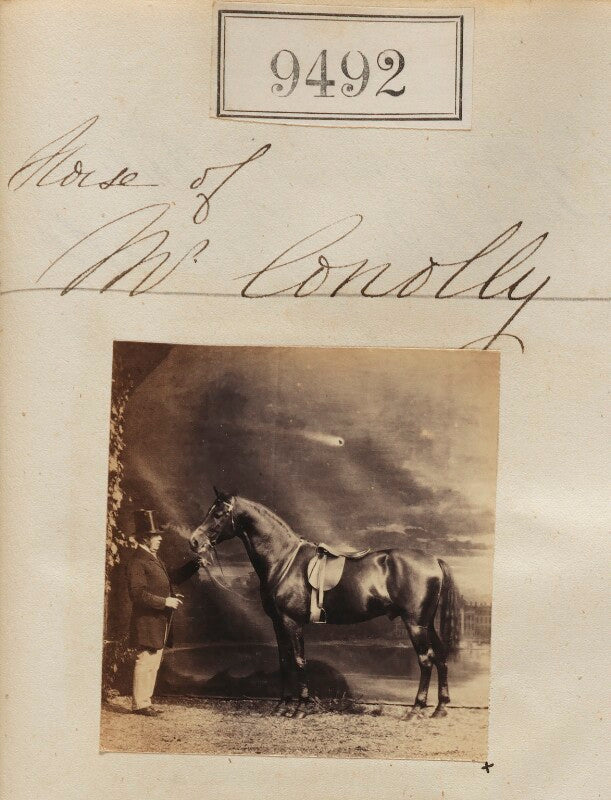 9492
Horse of
Mr. Conolly